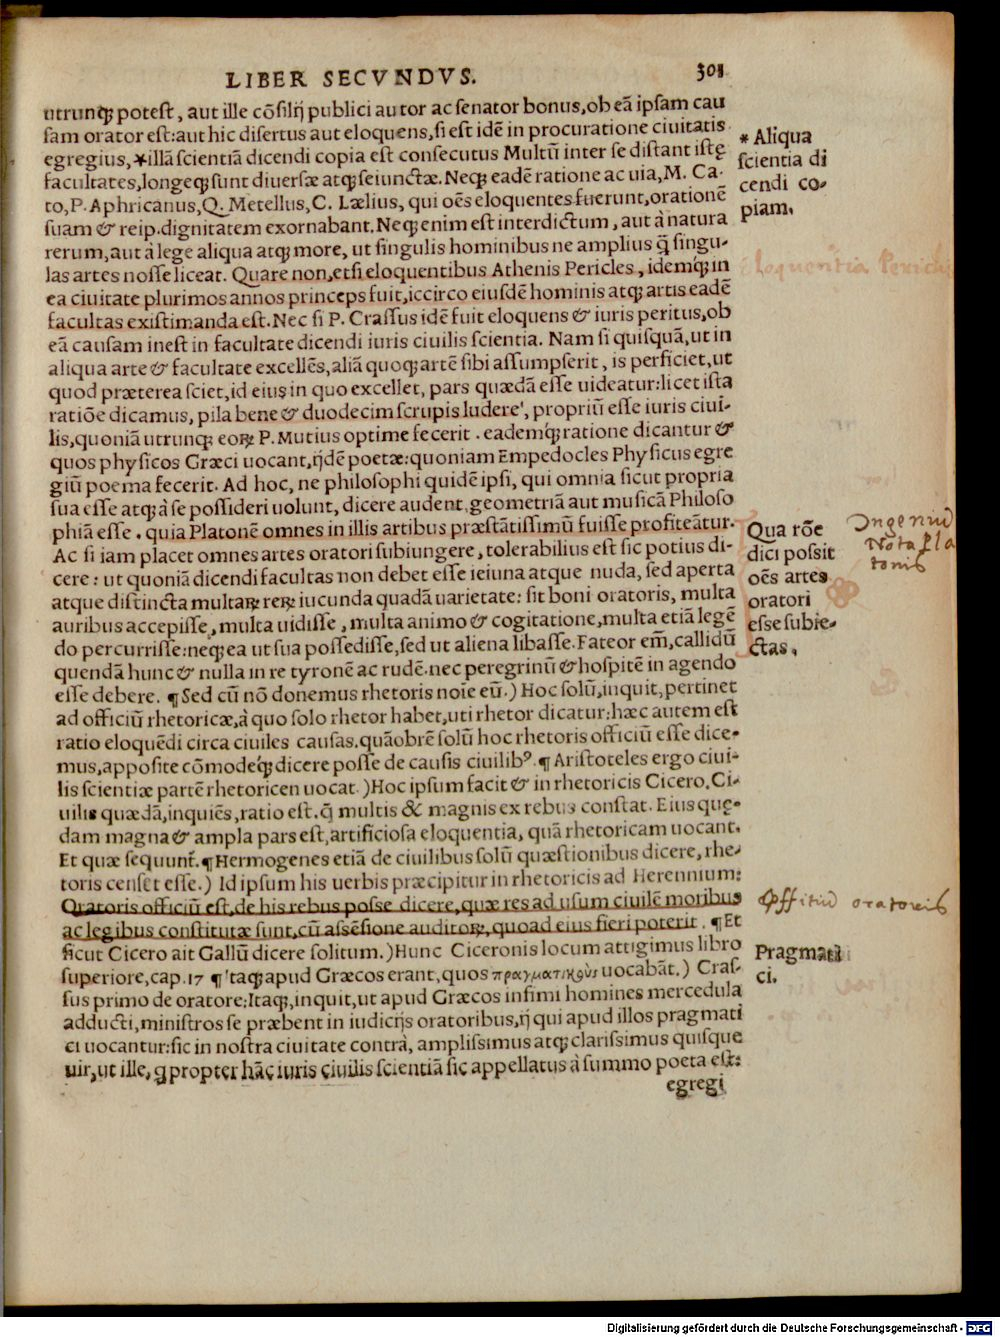 LIBER SECVNDVS. 301
utrunq; potest, aut ille cõsilij publici autor ac senator bonus, ob eã ipsam cau
sam orator est: aut hic disertus aut eloquens, si est idẽ in procuratione ciuitatis
egregius, *illã scientiã dicendi copia est consecutus Multũ inter se distant istę
facultates, longeq; sunt diuersæ atq; seiunctæ. Neq; eadẽ ratione ac uia, M. Ca-
to, P. Aphricanus, Q. Metellus, C. Lælius, qui oẽs eloquentes fuerunt, orationẽ
suam & reip. dignitatem exornabant. Neq; enim est interdictum, aut à natura
rerum, aut à lege aliqua atq; more, ut singulis hominibus ne amplius q̃ singu-
las artes nosse liceat. Quare non, etsi eloquentibus Athenis Pericles, idemq; in
ea ciuitate plurimos annos princeps fuit, iccirco eiusdẽ hominis atq; artis eadẽ
facultas existimanda est. Nec si P. Crassus idẽ fuit eloquens & iuris peritus, ob
eã causam inest in facultate dicendi iuris ciuilis scientia. Nam si quisquã, ut in
aliqua arte & facultate excellẽs, aliã quoq; artẽ sibi assumpserit, is perficiet, ut
quod præterea sciet, id eius, in quo excellet, pars quædã esse uideatur: licet ista
ratiõe dicamus, pila bene & duodecim scrupis ludere, propriũ esse iuris ciui-
lis, quoniã utrunq; eoꝝ P. Mutius optime fecerit. eademq; ratione dicantur &
quos physicos Græci uocant, ijdẽ poetæ: quoniam Empedocles Physicus egre
giũ poema fecerit. Ad hoc, ne philosophi quidẽ ipsi, qui omnia sicut propria
sua esse atq; à se possideri uolunt, dicere audent, geometriã aut musicã Philoso
phiã esse. quia Platonẽ omnes in illis artibus præstãtissimũ fuisse profiteãtur.
Ac si iam placet omnes artes oratori subiungere, tolerabilius est sic potius di-
cere: ut quoniã dicendi facultas non debet esse ieiuna atque nuda, sed aperta
atque distincta multaꝝ reꝝ iucunda quadã uarietate: sit boni oratoris, multa
auribus accepisse, multa uidisse, multa animo & cogitatione, multa etiã legẽ
do percurrisse: neq; ea ut sua possedisse, sed ut aliena libasse. Fateor em̃, callidũ
quendã hunc & nulla in re tyronẽ ac rudẽ. nec peregrinũ & hospitẽ in agendo
esse debere. ¶ Sed cũ nõ donemus rhetoris noĩe eũ.) Hoc solũ, inquit, pertinet
ad officiũ rhetoricæ, à quo solo rhetor habet, uti rhetor dicatur: hæc autem est
ratio eloquẽdi circa ciuiles causas. quãobrẽ solũ hoc rhetoris officiũ esse dice-
mus, apposite cõmodeq; dicere posse de causis ciuilibꝰ. ¶ Aristoteles ergo ciui-
lis scientiæ partẽ rhetoricen uocat.) Hoc ipsum facit & in rhetoricis Cicero. Ci-
uilis quædã, inquiẽs, ratio est. q̃ multis & magnis ex rebus constat. Eius quę-
dam magna & ampla pars est, artificiosa eloquentia, quã rhetoricam uocant.
Et quæ sequunt̃. ¶ Hermogenes etiã de ciuilibus solũ quæstionibus dicere, rhe-
toris censet esse.) Id ipsum his uerbis præcipitur in rhetoricis ad Herennium:
Oratoris officiũ est, de his rebus posse dicere, quæ res ad usum ciuilẽ moribus
ac legibus constitutæ sunt, cũ assẽsione auditoꝝ, quoad eius fieri poterit. ¶ Et
sicut Cicero ait Gallũ dicere solitum.) Hunc Ciceronis locum attigimus libro
superiore, cap. 17 ¶ Itaq; apud Græcos erant, quos πραγματικοὺς uocabãt.) Cras-
sus primo de oratore: Itaq;, inquit, ut apud Græcos infimi homines mercedula
adducti, ministros se præbent in iudicijs oratoribus, ij qui apud illos pragmati
ci uocantur: sic in nostra ciuitate contrà, amplissimus atq; clarissimus quisque
uir, ut ille, q propter hãc iuris ciuilis scientiã sic appellatus à summo poeta est:
egregi
* Aliqua
scientia di
cendi co-
piam.
Eloquentia Perichi
Qua rõe
dici possit
oẽs artes
oratori
esse subie-
ctas.
Ingeniũ
Nota Pla
tonis
Offitiũ oratoris
Pragmati
ci.
Digitalisierung gefördert durch die Deutsche Forschungsgemeinschaft - DFG